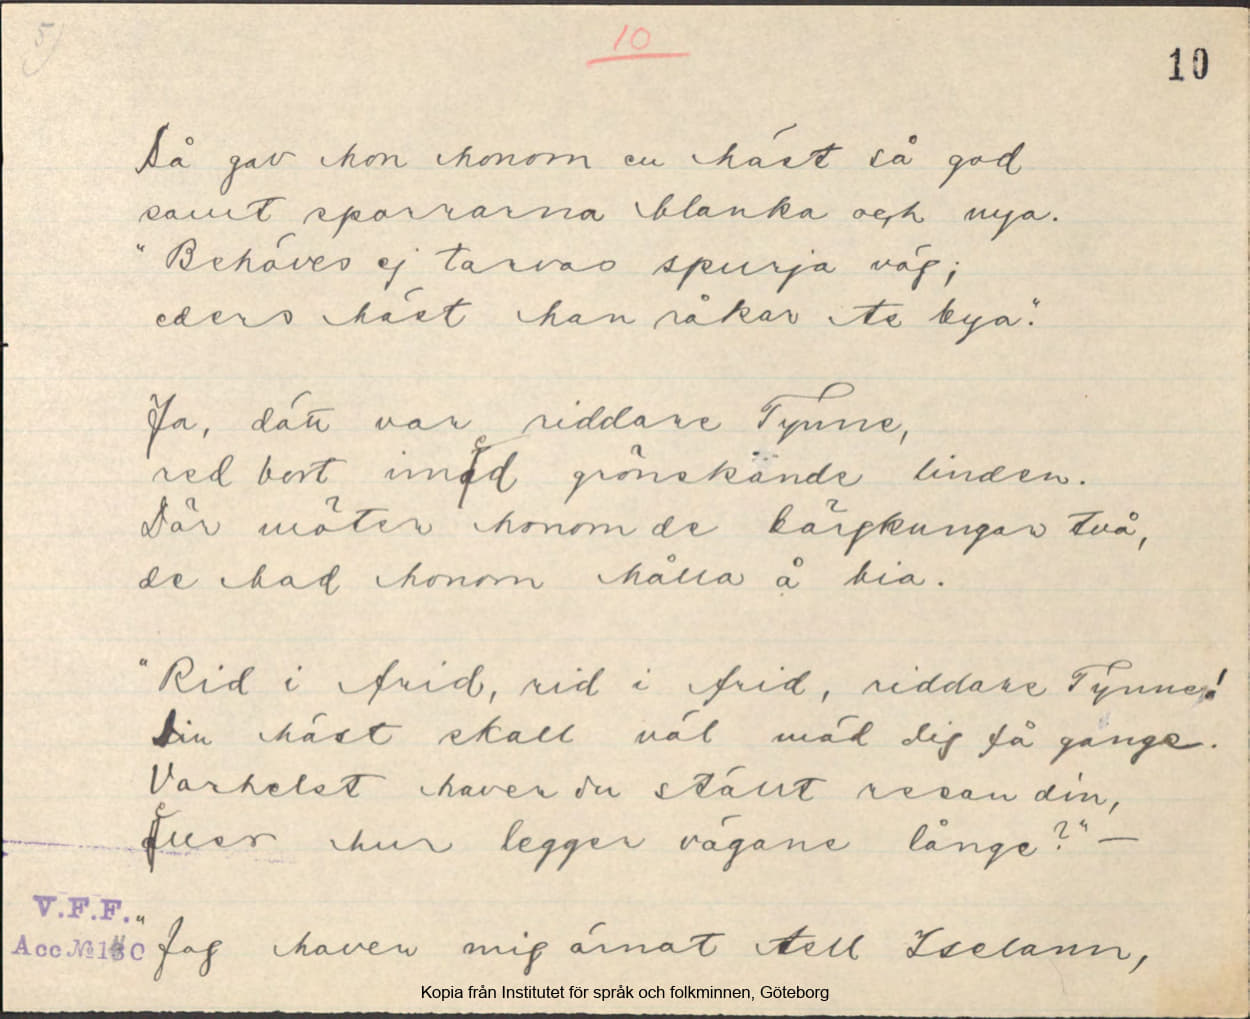 5)
10
10
Då gav hon honom en häst så god
samt sporrarna blanka och nya.
"Behöves ej tarvas spurja väg;
eders häst han råkar te bya."
Ja, dätt var riddare Tynne,
red bort imød grönskände linden.
Där möter honom de bärgkungar två,
de bad honom hålla å bia.
"Rid i frid, rid i frid, riddare Tynne!
Din häst skall väl mäd dig få gange.
Varhelst haver du ställt resan din,
hur legger vägane långe?" —
V.F.F.
Acc. № 130
"Jag haver mig ärnat tell Iselann,
Kopia från Institutet för språk och folkminnen, Göteborg